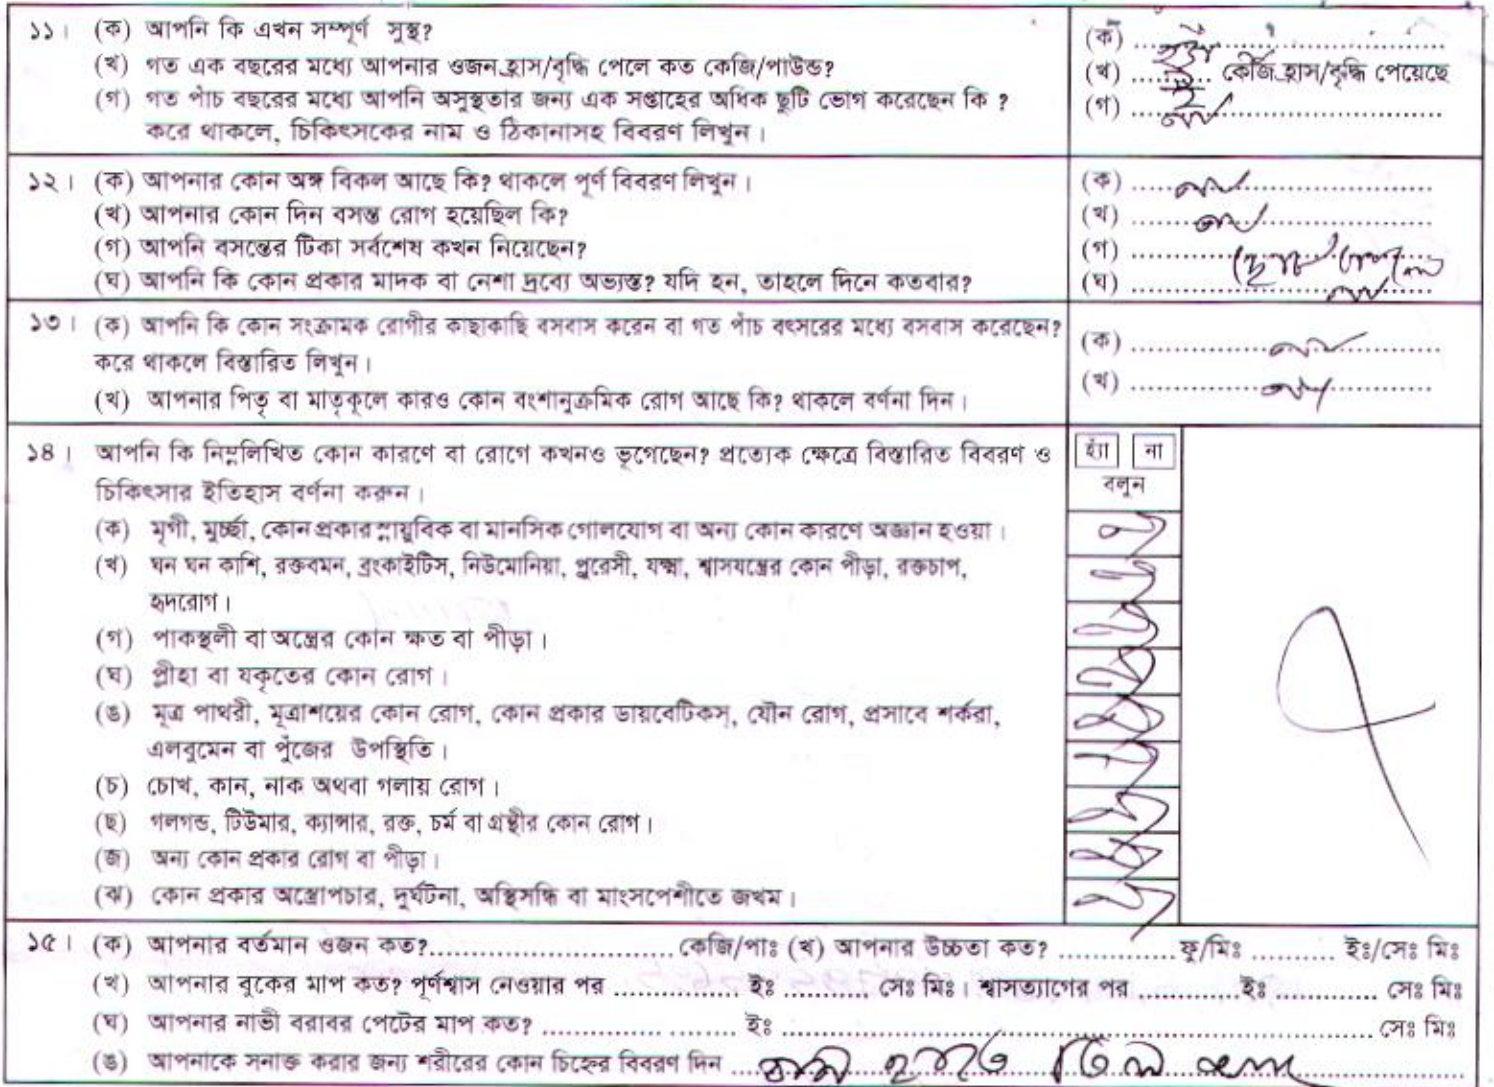 ১১। (ক) আপনি কি এখন সম্পূর্ণ সুস্থ? (ক) .... হ্যাঁ ....
(খ) গত এক বছরের মধ্যে আপনার ওজন হ্রাস/বৃদ্ধি পেলে কত কেজি/পাউন্ড? (খ) ........ কেজি হ্রাস/বৃদ্ধি পেয়েছে
(গ) গত পাঁচ বছরের মধ্যে আপনি অসুস্থতার জন্য এক সপ্তাহের অধিক ছুটি ভোগ করেছেন কি ? (গ) .... না ....
করে থাকলে, চিকিৎসকের নাম ও ঠিকানাসহ বিবরণ লিখুন।
১২। (ক) আপনার কোন অঙ্গ বিকল আছে কি? থাকলে পূর্ণ বিবরণ লিখুন। (ক) .... না ....
(খ) আপনার কোন দিন বসন্ত রোগ হয়েছিল কি? (খ) .... না ....
(গ) আপনি বসন্তের টিকা সর্বশেষ কখন নিয়েছেন? (গ) .... ছোট বেলায়
(ঘ) আপনি কি কোন প্রকার মাদক বা নেশা দ্রব্যে অভ্যস্ত? যদি হন, তাহলে দিনে কতবার? (ঘ) .... না ....
১৩। (ক) আপনি কি কোন সংক্রামক রোগীর কাছাকাছি বসবাস করেন বা গত পাঁচ বৎসরের মধ্যে বসবাস করেছেন? (ক) .... না ....
করে থাকলে বিস্তারিত লিখুন।
(খ) আপনার পিতৃ বা মাতৃকূলে কারও কোন বংশানুক্রমিক রোগ আছে কি? থাকলে বর্ণনা দিন। (খ) .... না ....
১৪। আপনি কি নিম্নলিখিত কোন কারণে বা রোগে কখনও ভূগেছেন? প্রত্যেক ক্ষেত্রে বিস্তারিত বিবরণ ও হ্যাঁ না
চিকিৎসার ইতিহাস বর্ণনা করুন। বলুন
(ক) মৃগী, মুর্চ্ছা, কোন প্রকার স্নায়ুবিক বা মানসিক গোলযোগ বা অন্য কোন কারণে অজ্ঞান হওয়া। না
(খ) ঘন ঘন কাশি, রক্তবমন, ব্রংকাইটিস, নিউমোনিয়া, প্লুরেসী, যক্ষ্মা, শ্বাসযন্ত্রের কোন পীড়া, রক্তচাপ, না
হৃদরোগ।
(গ) পাকস্থলী বা অন্ত্রের কোন ক্ষত বা পীড়া। না
(ঘ) প্লীহা বা যকৃতের কোন রোগ। না
(ঙ) মূত্র পাথরী, মূত্রাশয়ের কোন রোগ, কোন প্রকার ডায়বেটিকস্, যৌন রোগ, প্রসাবে শর্করা, না
এলবুমেন বা পুঁজের উপস্থিতি।
(চ) চোখ, কান, নাক অথবা গলায় রোগ। না
(ছ) গলগন্ড, টিউমার, ক্যান্সার, রক্ত, চর্ম বা গ্রন্থীর কোন রোগ। না
(জ) অন্য কোন প্রকার রোগ বা পীড়া। না
(ঝ) কোন প্রকার অস্ত্রোপচার, দুর্ঘটনা, অস্থিসন্ধি বা মাংসপেশীতে জখম। না
১৫। (ক) আপনার বর্তমান ওজন কত?........................ কেজি/পাঃ (খ) আপনার উচ্চতা কত? ............ ফু/মিঃ .......... ইঃ/সেঃ মিঃ
(খ) আপনার বুকের মাপ কত? পূর্ণশ্বাস নেওয়ার পর ............... ইঃ .......... সেঃ মিঃ। শ্বাসত্যাগের পর ............ইঃ ............. সেঃ মিঃ
(ঘ) আপনার নাভী বরাবর পেটের মাপ কত? .............. ........ ইঃ .................................................... সেঃ মিঃ
(ঙ) আপনাকে সনাক্ত করার জন্য শরীরের কোন চিহ্নের বিবরণ দিন .... হাতে তিল আছে